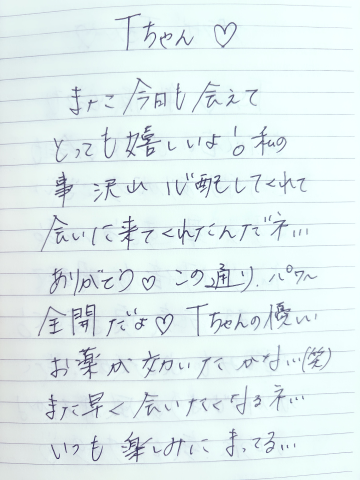 Tちゃん♡
また今日も会えて
とっても嬉しいよ!私の
事沢山心配してくれて
会いに来てくれたんだネ…
ありがとう♡この通り、パワー
全開だよ♡Tちゃんの優しい
お薬が効いたかな…(笑)
また早く会いたくなるネ…
いつも楽しみにまってる…